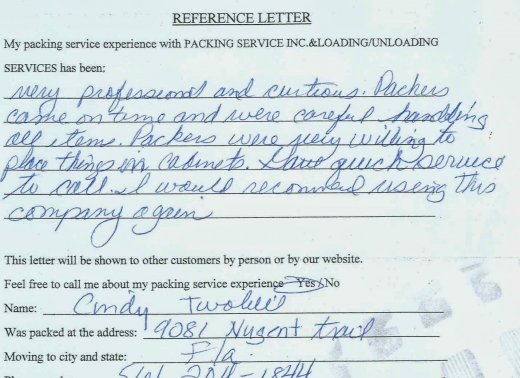 REFERENCE LETTER
My packing service experience with PACKING SERVICE INC.&LOADING/UNLOADING
SERVICES has been:
very professional and curtious. Packers
came on time and were careful handling
all items. Packers were very willing to
place things in cabinets. quick service
to call. I would recommed using this
company again
This letter will be shown to other customers by person or by our website.
Feel free to call me about my packing service experience Yes/No
Name: Cindy
Was packed at the address: 9081 Nugent trail
Moving to city and state: Fla.